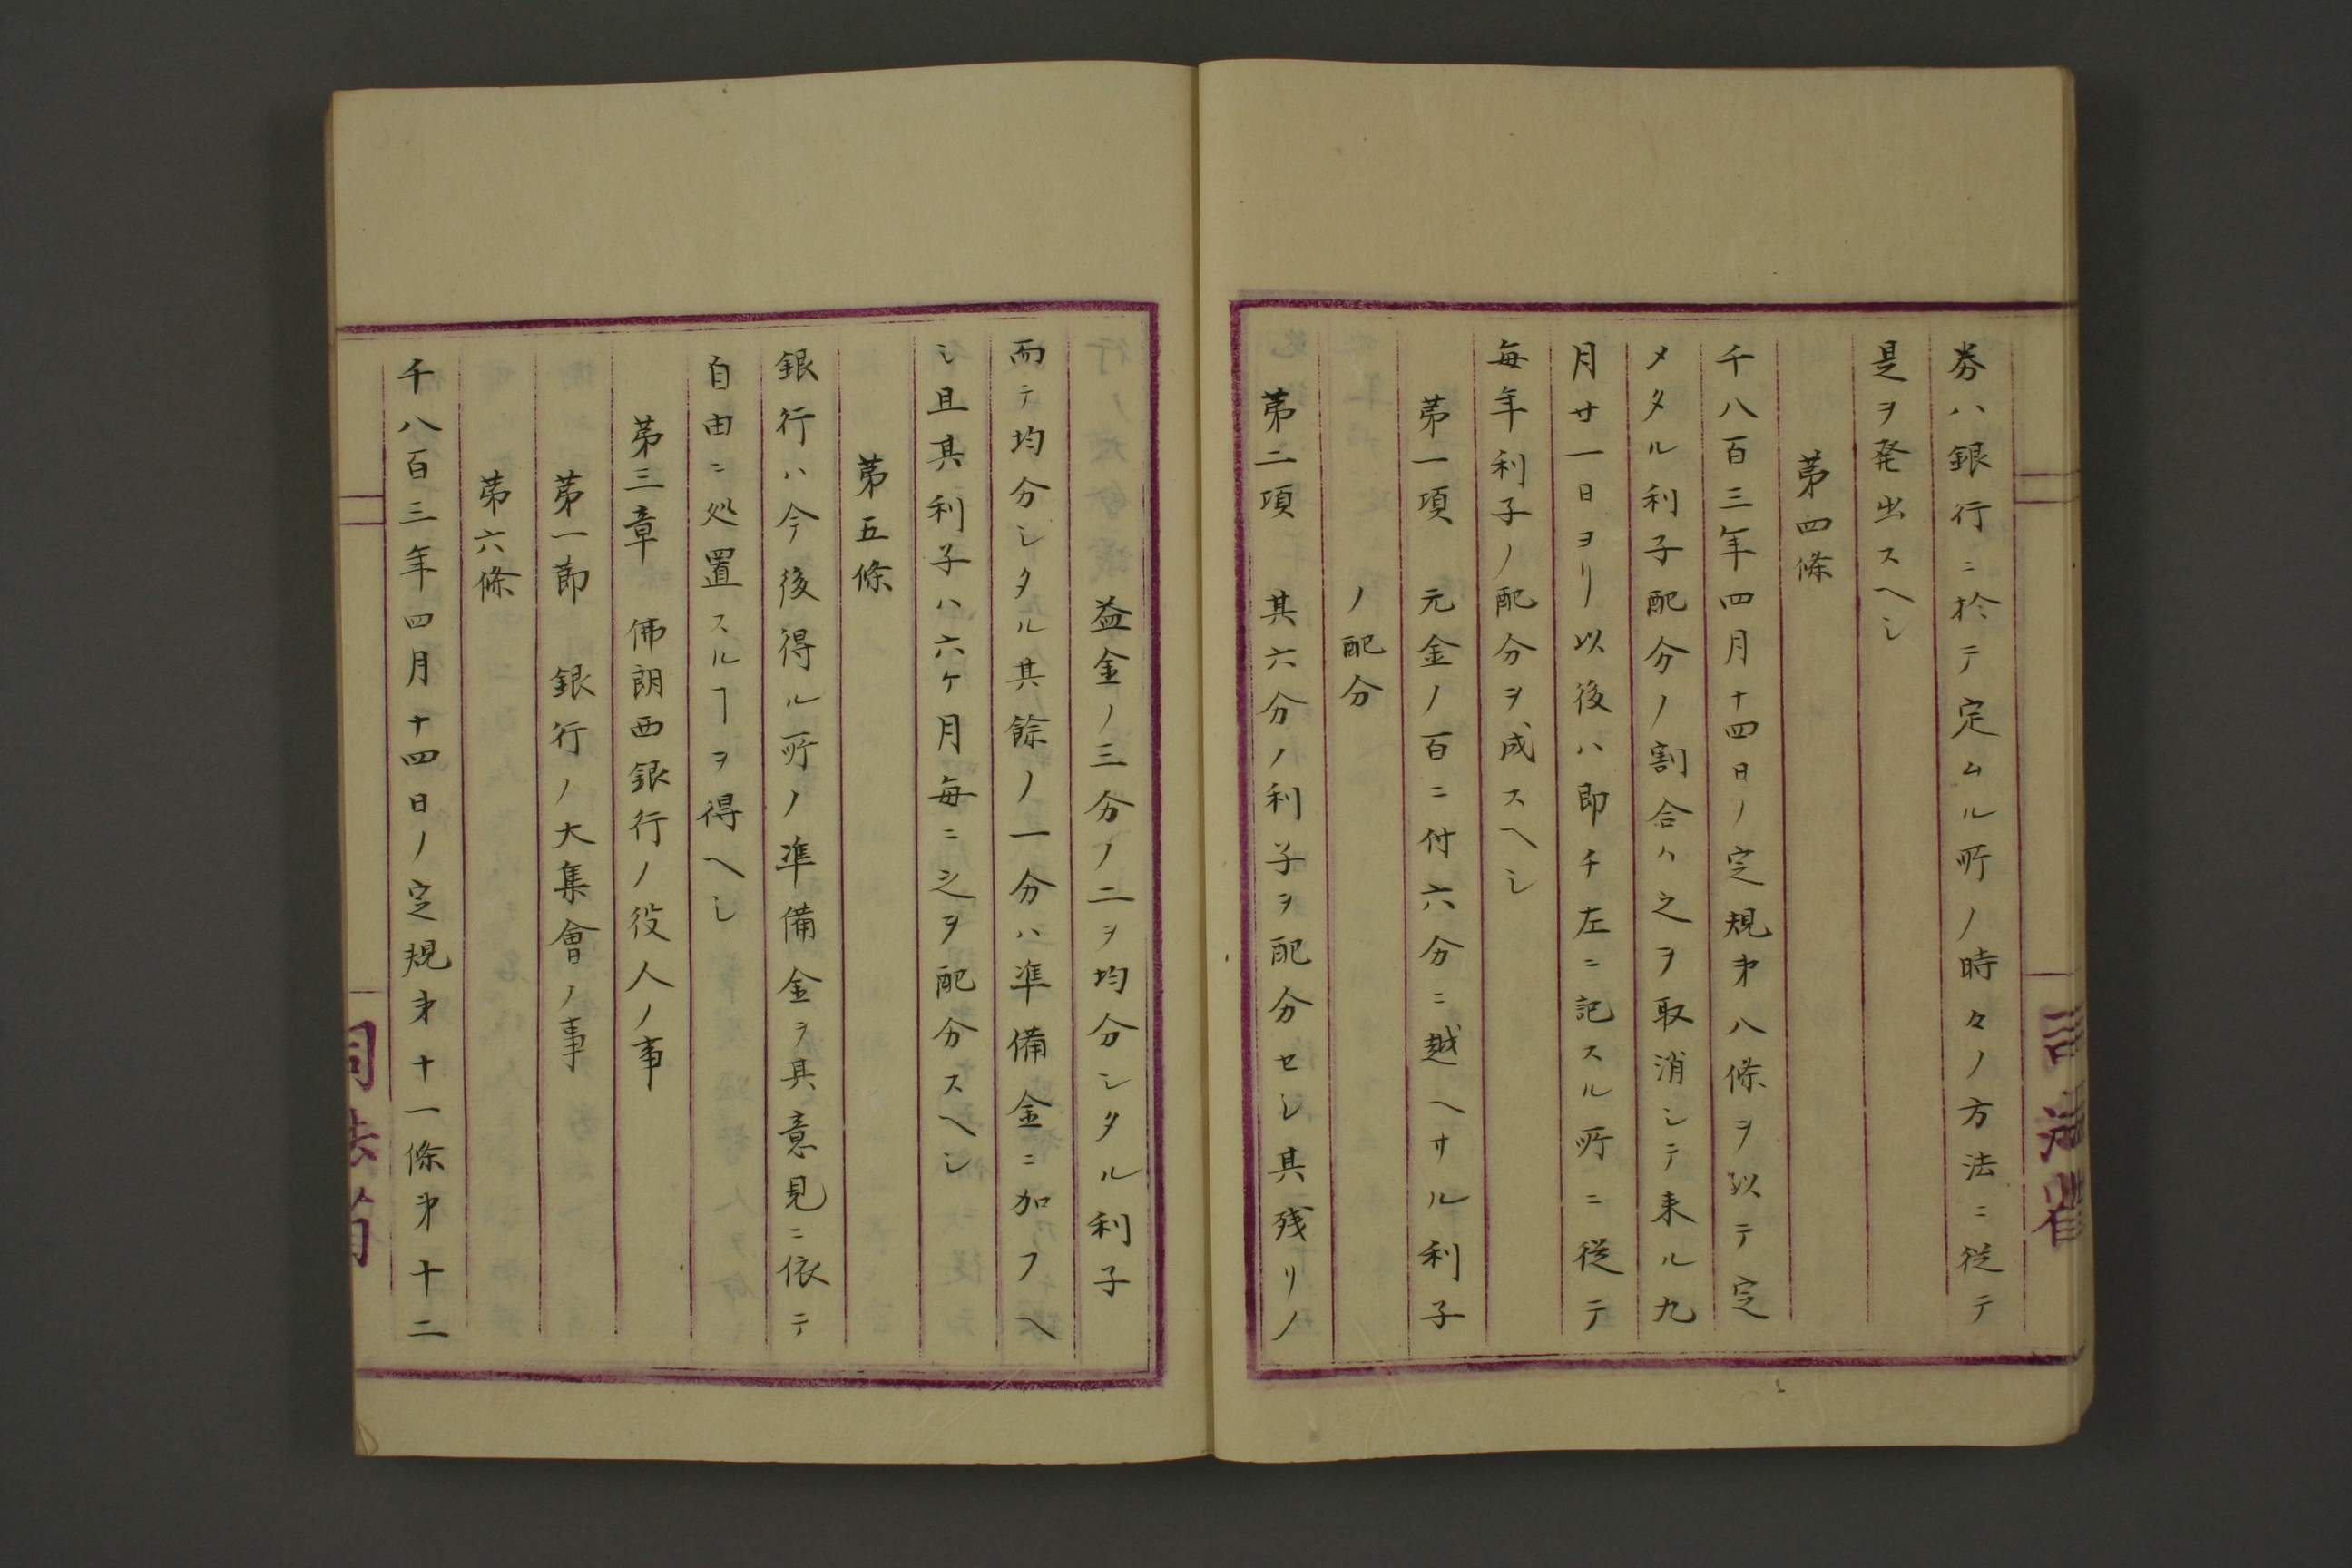 券ハ銀行ニ於テ定ムル所ノ時々ノ方法ニ従テ
是ヲ発出スヘシ
第四條
千八百三年四月十四日ノ定規第八條ヲ以テ定
メタル利子配分ノ割合ハ之ヲ取消シテ来ル九
月廿一日ヨリ以後ハ即チ左ニ記スル所ニ従テ
毎年利子ノ配分ヲ成スヘシ
第一項 元金ノ百ニ付六分ニ越ヘサル利子
ノ配分
第二項 其六分ノ利子ヲ配分セシ其残リノ
益金ノ三分ノ二ヲ均分シタル利子
而テ均分シタル其餘ノ一分ハ準備金ニ加フヘ
シ且其利子ハ六ケ月毎ニ之ヲ配分スヘシ
第五條
銀行ハ今後得ル所ノ準備金ヲ其意見ニ依テ
自由ニ処置スルヿヲ得ヘシ
第三章 佛朗西銀行ノ役人ノ事
第一節 銀行ノ大集會ノ事
第六條
千八百三年四月十四日ノ定規第十一條第十二
司法省